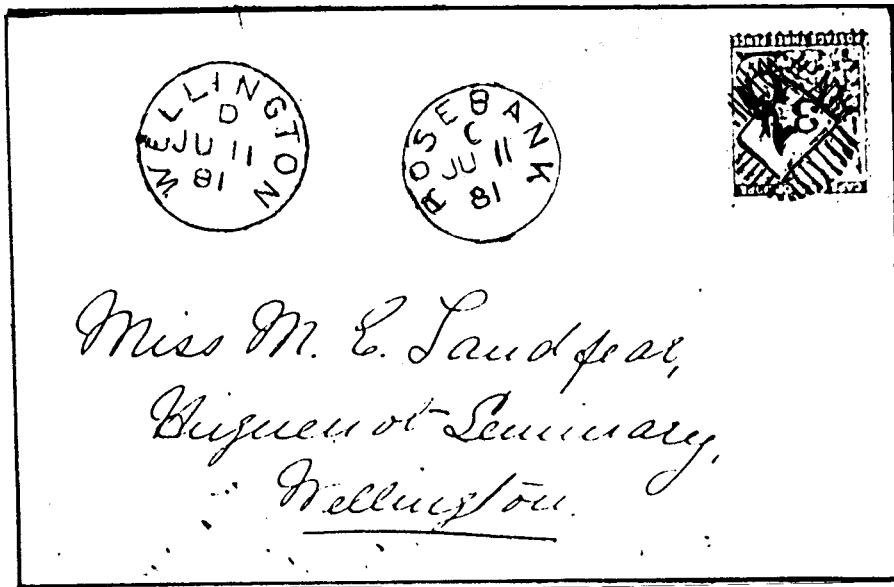 WELLINGTON
D
JU 11
81
ROSEBANK
C
JU 11
81
3
Miss M. E. Landfear,
Huguenot Seminary,
Wellington.